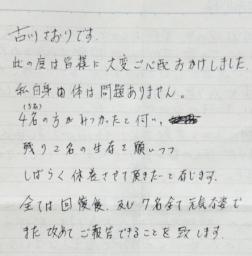 古川さおりです。
此の度は皆様に大変ご心配おかけしました。
私自身身体は問題ありません。
(うち)
4名の方がみつかったと伺い、
残り2名の生存を願いつつ
しばらく休養させて頂きたいと存じます。
全ては回復後、及び7名全て元気な姿で
また改めてご報告できることを致します。